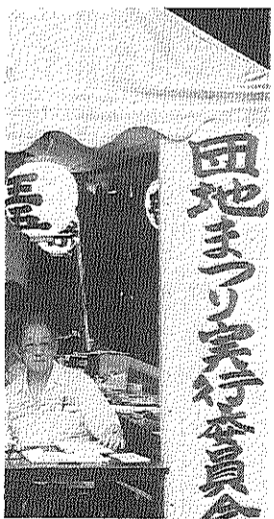 団地まつり実行委員会